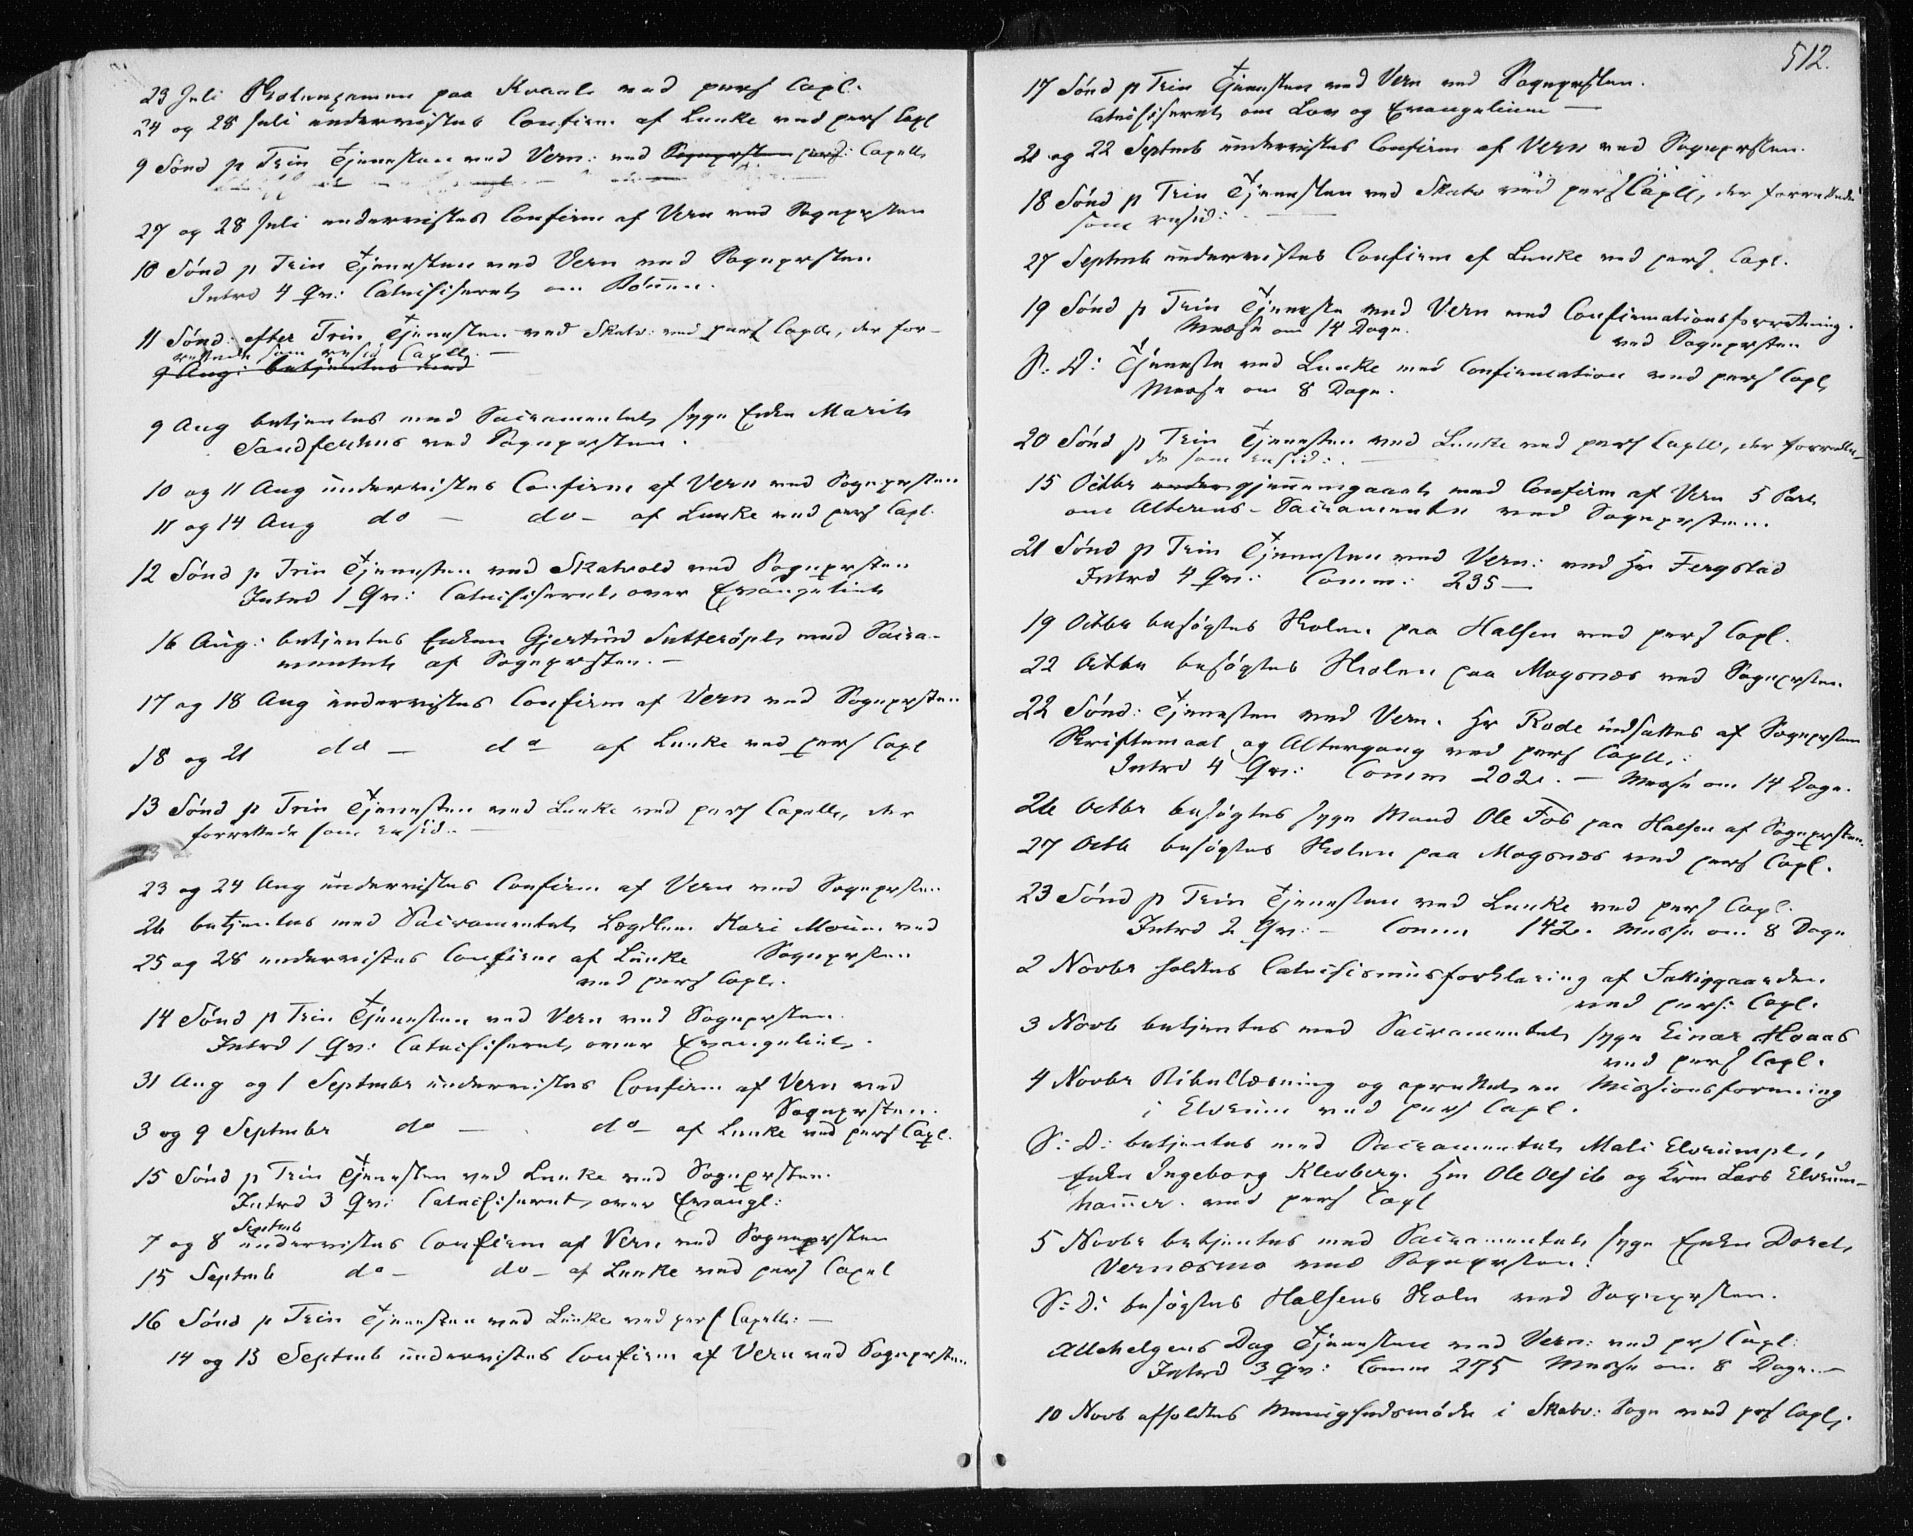 23 Juli Skolexamen paa Kvaale ved pers Capl.
24 og 28 Juli undervistes Confirm af Lunke ved pers Capl
9 Sønd p Trin Tjenesten ved Vern: ved Sognepresten pers: Capell,
27 og 28 Juli undervistes Confirm af Vern ved Sogneprsten
10 Sønd p Trin Tjenesten ved Vern ved Sogneprsten
Introd 4 Qv: Catechiseret, om Bønnen.
11 Sønd. efter Trin Tjenesten ved Skatv: ved pers Capll, der for-
rettede som resid Capll. —
9 Aug: betjentes med
9 Aug betjentes med Sacramentet syge Enke Marit
Sandferhus ved Sogneprsten.
10 og 11 Aug undervistes Confirm af Vern ved Sogneprsten
11 og 14 Aug do — do — af Lunke ved pers Capl.
12 Sønd p Trin Tjenesten ved Skatvold ved Sogneprsten
Introd 1 Qv: Catechiseret, over Evangeliet
16 Aug: betjentes Enken Gjertrud Sutterøpl, med Sacra-
mentet af Sogneprsten. —
17 og 18 Aug undervistes Confirm af Vern ved Sogneprsten
18 og 21 do — do af Lunke ved pers Capl
13 Sønd p Trin Tjenesten ved Lunke ved pers Capell, der
forrettede som resid. —
23 og 24 Aug undervistes Confirm af Vern ved Sogneprsten
26 betjentes med Sacramentet, Lægdlem Kari Moum ved
Sogneprsten
25 og 28 undervistes Confirm af Lunke
ved pers Capl.
14 Sønd p Trin Tjenesten ved Vern ved Sogneprsten.
Introd 1 Qv: Catechiseret, over Evangeliet.
31 Aug og 1 Septmbr undervistes Confirm af Vern ved
Sogneprsten.
3 og 9 Septmbr do — do — af Lunke ved pers Capl.
15 Sønd p Trin Tjenesten ved Lunke ved Sogneprsten.
Introd 3 Qv: Catechiseret, over Evangl:
Septmb
7 og 8 undervistes Confirm af Vern ved Sogneprsten
15 Septmb do — do — af Lunke ved pers Capel
16 Sønd p Trin Tjenesten ved Lunke ved pers Capell: —
14 og 15 Septmb undervistes Confirm af Vern ved Sogneprsten
512.
17 Sønd p Trin Tjenesten ved Vern ved Sogneprsten.
Catechiseret, om Lov og Evangelium —
21 og 22 Septmb undervistes Confirm af Vern ved Sogneprsten.
18 Sønd p Trin Tjenesten ved Skatv ved pers Capll, der forrettede
som resid: —
27 Septmb undervistes Confirm af Lunke ved pers Capl.
19 Sønd p Trin Tjeneste ved Vern med Confirmationsforretning.
Messe om 14 Dage. ved Sogneprsten
S: D: Tjeneste ved Lunke med Confirmation ved pers Capl,
Messe om 8 Dage.
20 Sønd p Trin Tjenesten ved Lunke ved pers Capll, der forrette-
de som resid: . —
15 Octbr under gjennemgaaet, med Confirm af Vern 5 Part
om Alterens-Sacramente ved Sogneprsten.
21 Sønd p Trin Tjenesten ved Vern: ved Hr Fergstad
Introd 4 Qv: Comm: 235 —
19 Octbr besøgtes Skolen paa Halsen ved pers Capl.
22 Octbr besøgtes Skolen paa Magsnæs ved Sogneprsten.
22 Sønd: Tjenesten ved Vern. Hr Rode indsattes af Sogneprsten
Skriftemaal og Altergang ved pers Capll.:
Introd 4 Qv: Comm 202. — Messe om 14 Dage.
26 Octbr besøgtes syge Mand Ole Fos paa Halsen af Sogneprsten.
27 Octb besøgtes Skolen paa Magsnæs ved pers Capl.
23 Sønd p Trin Tjenesten ved Lunke ved pers Capl.
Introd 2 Qv: — Comm 142. Messe om 8 Dage
2 Novbr holdtes Catechismusforklaring af Fattiggaarden
ved pers: Capl.
3 Novb betjentes med Sacramentet, syge Einar Hoaas
ved pers Capl.
4 Novbr Bibellæsning og oprettet, en Missionsforening
i Elvrum ved pers Capl.
S: D: betjentes med Sacramentet Mali Elvrumpl,
Enke Ingeborg Klevberg. Hm Ole Ols ib og Krm Lars Elvrum-
hammer. ved pers Capl
5 Novbr betjentes med Sacramentet, syge Enke Doret,
Vernæsmo ved Sogneprsten.
S: D: besøgtes Halsens Skole ved Sogneprsten.
Allehelgens Dag Tjenesten ved Vern: ved prs Capl:
Introd 3 Qv: Comm 275 Messe om 8 Dage. —
10 Novb afholdtes Menighedsmøde i Skatv: Sogn ved prs Capl,